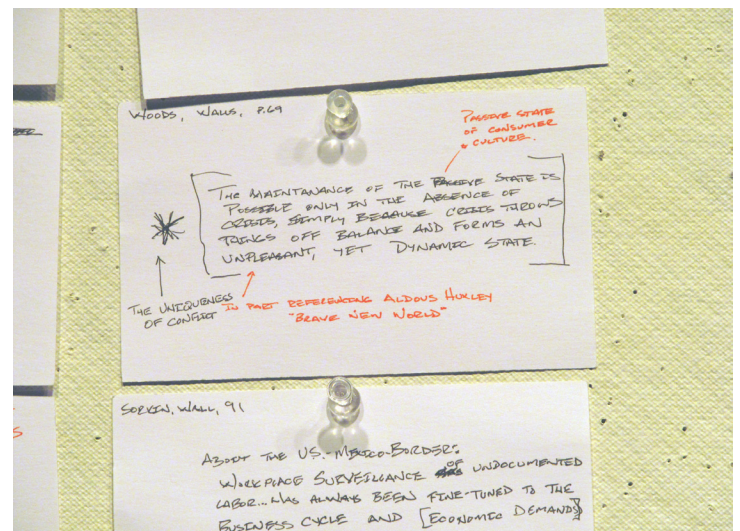 WOODS, WALLS, P.69
PASSIVE STATE
OF CONSUMER
CULTURE.
THE MAINTANANCE OF THE PASSIVE STATE IS
POSSIBLE ONLY IN THE ABSENCE OF
CRISIS, SIMPLY BECAUSE CRISIS THROWS
THINGS OFF BALANCE AND FORMS AN
UNPLEASANT, YET DYNAMIC STATE.
THE UNIQUENESS
OF CONFLICT
IN PART REFERENCING ALDOUS HUXLEY
"BRAVE NEW WORLD"
SORKIN, WALL, 91
ABOUT THE U.S.-MEXICO-BORDER:
WORKPLACE SURVEILLANCE OF UNDOCUMENTED
LABOR... HAS ALWAYS BEEN FINE-TUNED TO THE
BUSINESS CYCLE AND [ECONOMIC DEMANDS]